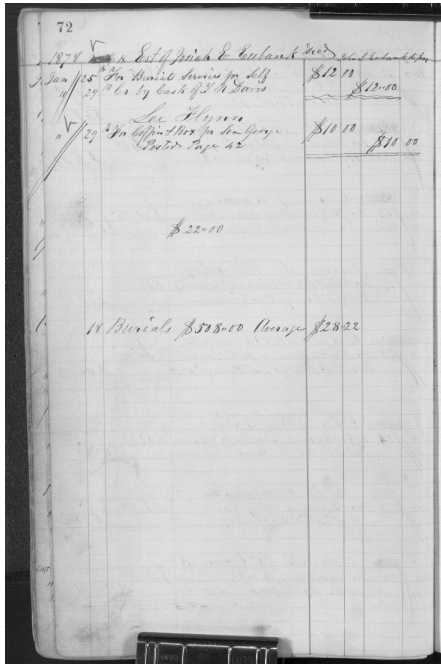 72
1878 Est of Josiah E Eubank Dec'd
Jan 25 To For Burial Services for Self $12 00
" 29 By Cr by Cash of T R Davis $12.00
Lee Flynn
" 29 To For Coffin & Box for Son George $10 00
Posted Page 42 $10 00
$22.00
18 Burials $508.00 Average $28.22